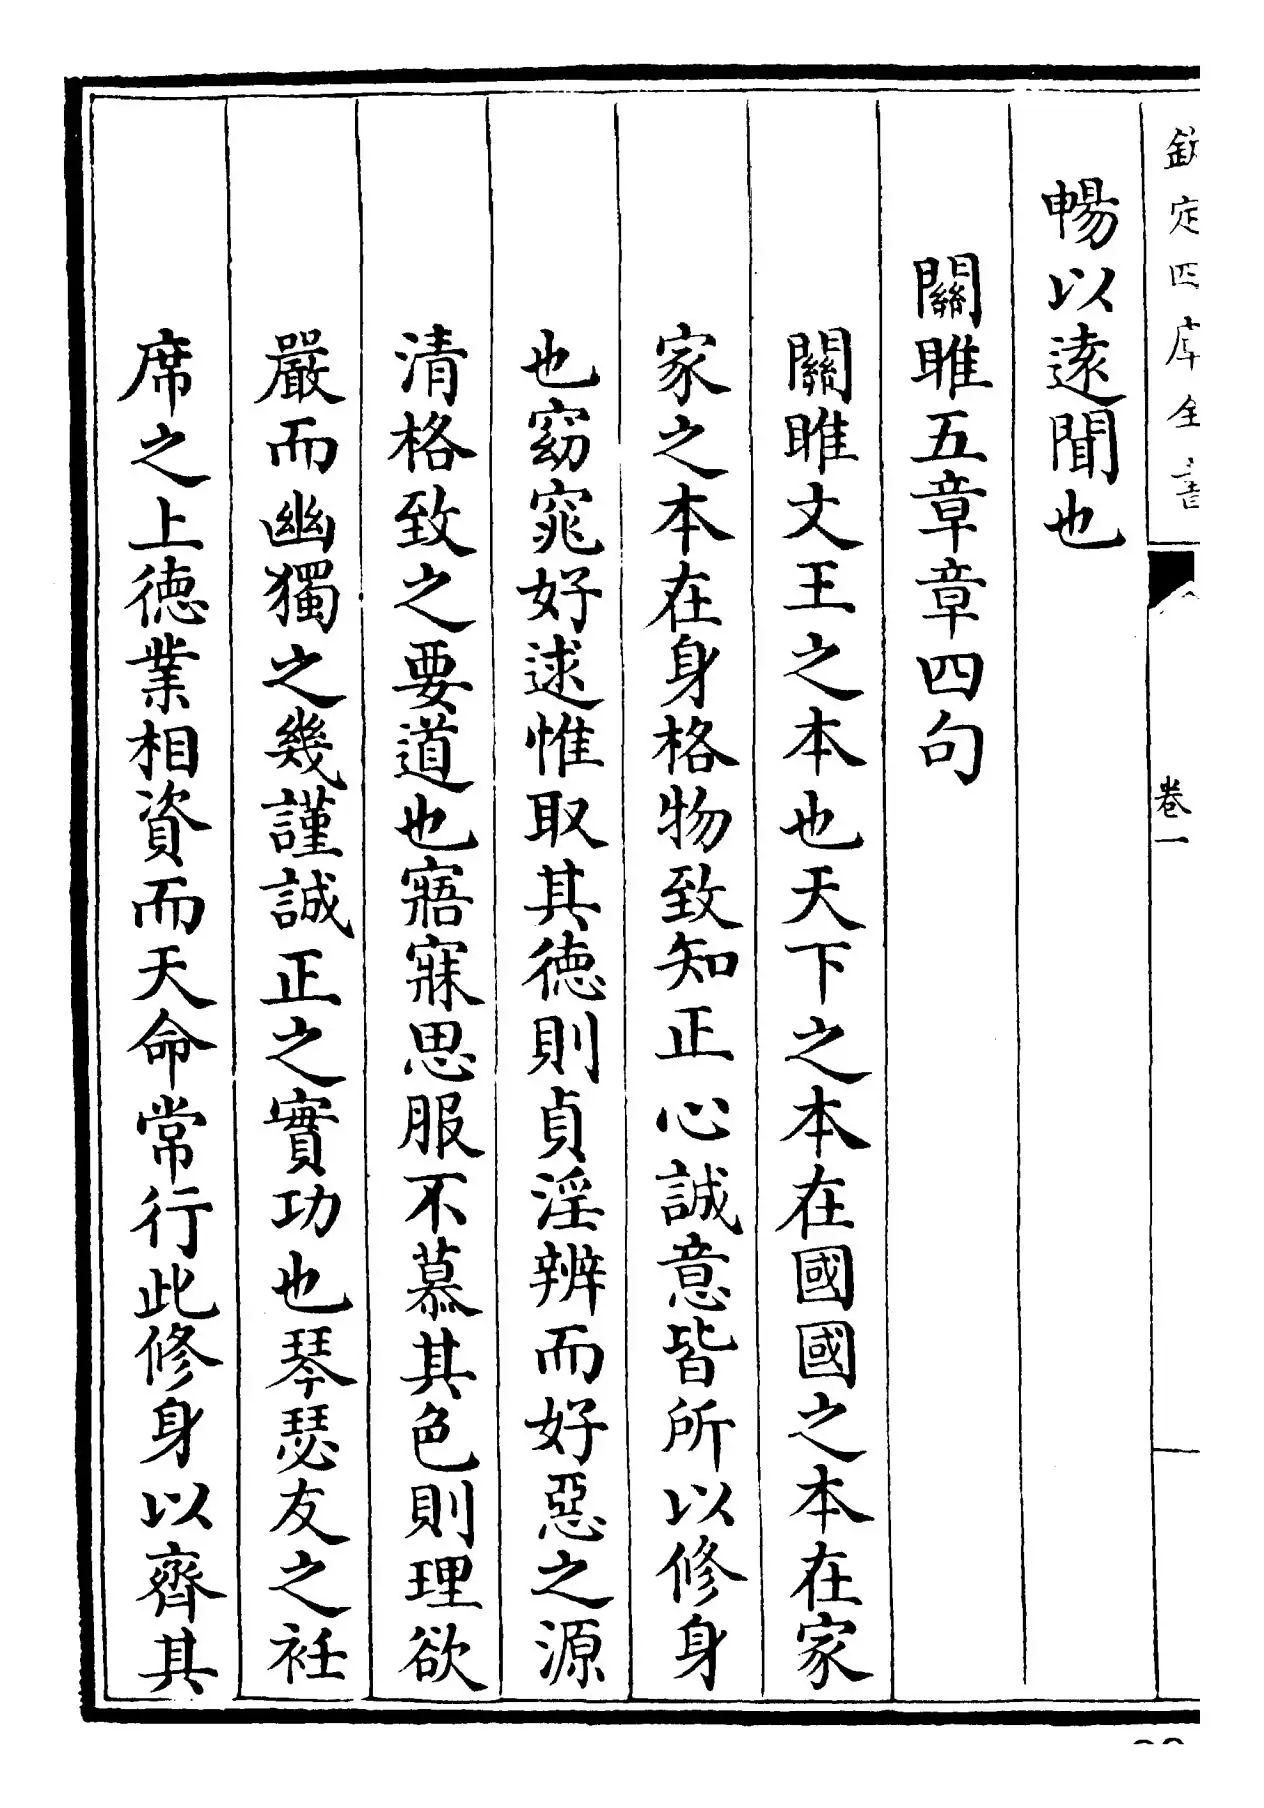 欽定四庫全書
卷一
暢以遠聞也
關雎五章章四句
關雎文王之本也天下之本在國國之本在家
家之本在身格物致知正心誠意皆所以修身
也窈窕好逑惟取其徳則貞淫辨而好惡之源
清格致之要道也寤寐思服不慕其色則理欲
嚴而幽獨之幾謹誠正之實功也琴瑟友之衽
席之上徳業相資而天命常行此修身以齊其